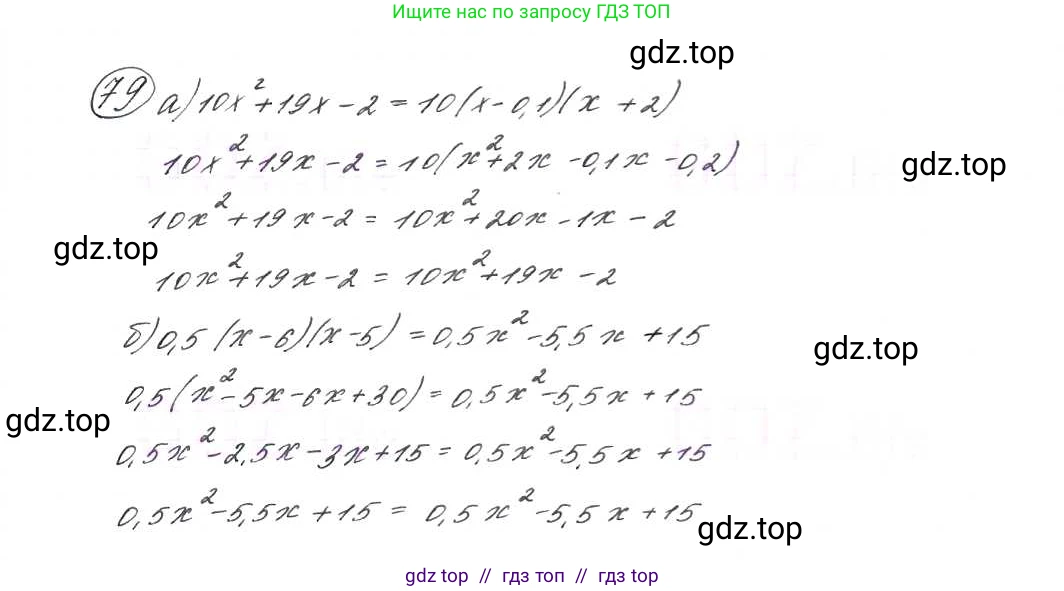 Ищите нас по запросу ГДЗ ТОП
gdz.top
79 а) 10x² + 19x - 2 = 10(x - 0,1)(x + 2)
10x² + 19x - 2 = 10(x² + 2x - 0,1x - 0,2)
gdz.top
10x² + 19x - 2 = 10x² + 20x - 1x - 2
gdz.top
10x² + 19x - 2 = 10x² + 19x - 2
б) 0,5(x - 6)(x - 5) = 0,5x² - 5,5x + 15
gdz.top
0,5(x² - 5x - 6x + 30) = 0,5x² - 5,5x + 15
gdz.top
0,5x² - 2,5x - 3x + 15 = 0,5x² - 5,5x + 15
0,5x² - 5,5x + 15 = 0,5x² - 5,5x + 15
gdz.top
gdz top // гдз топ // gdz top